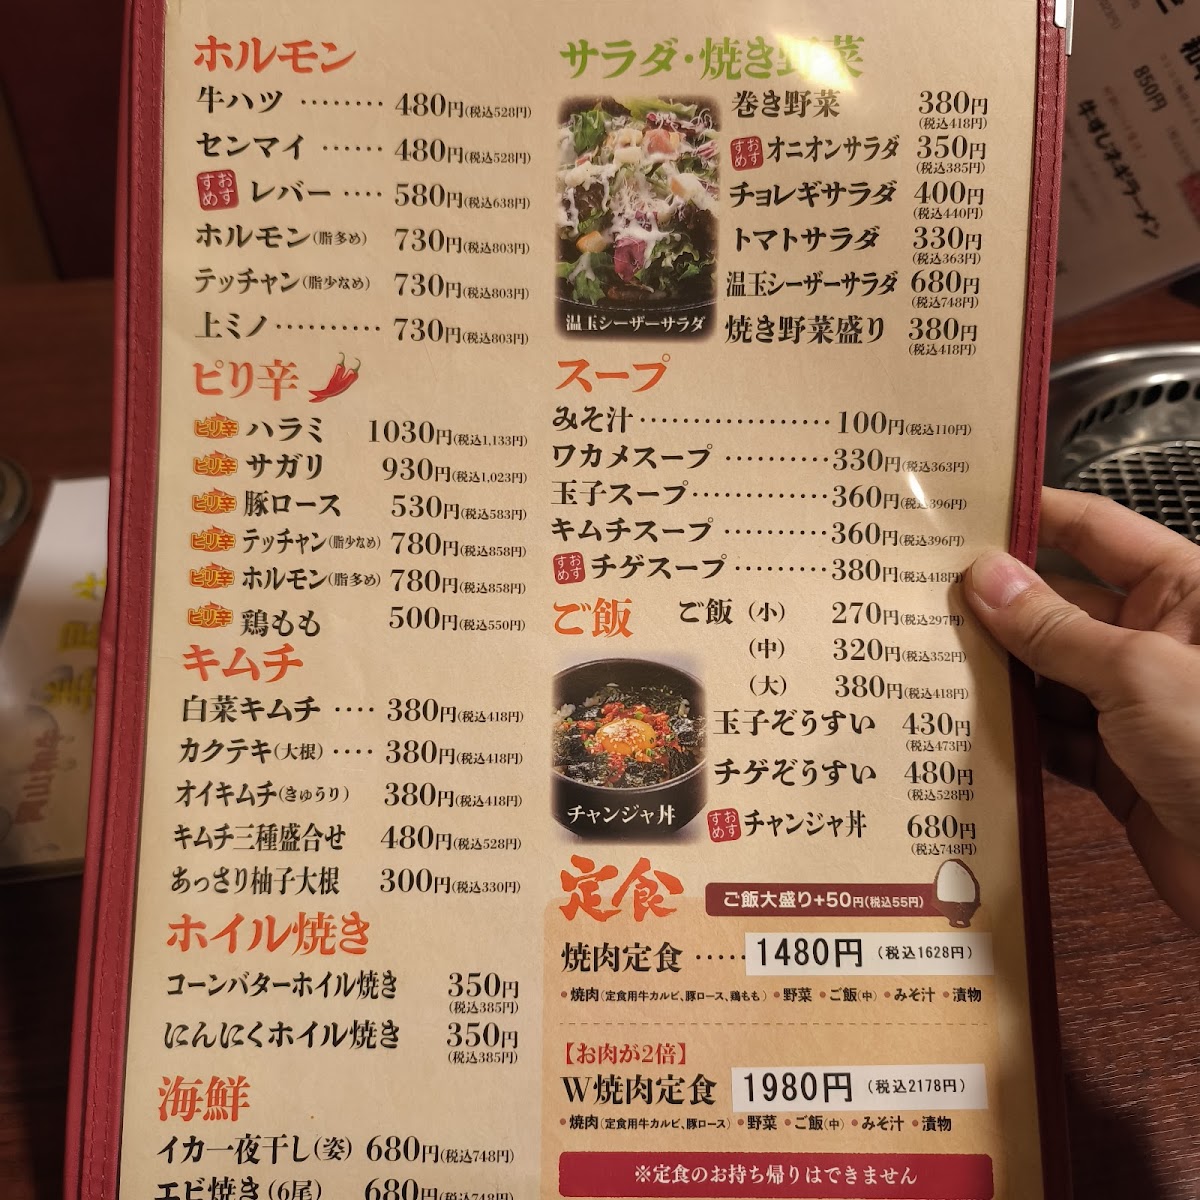 ホルモン
牛ハツ ········ 480円(税込528円)
センマイ ······ 480円(税込528円)
おすすめ レバー ···· 580円(税込638円)
ホルモン(脂多め) 730円(税込803円)
テッチャン(脂少なめ) 730円(税込803円)
上ミノ ·········· 730円(税込803円)
ピリ辛
ピリ辛 ハラミ 1030円(税込1,133円)
ピリ辛 サガリ 930円(税込1,023円)
ピリ辛 豚ロース 530円(税込583円)
ピリ辛 テッチャン(脂少なめ) 780円(税込858円)
ピリ辛 ホルモン(脂多め) 780円(税込858円)
ピリ辛 鶏もも 500円(税込550円)
キムチ
白菜キムチ ···· 380円(税込418円)
カクテキ(大根) ···· 380円(税込418円)
オイキムチ(きゅうり) 380円(税込418円)
キムチ三種盛合せ 480円(税込528円)
あっさり柚子大根 300円(税込330円)
ホイル焼き
コーンバターホイル焼き 350円
(税込385円)
にんにくホイル焼き 350円
(税込385円)
海鮮
イカ一夜干し(姿) 680円(税込748円)
エビ焼き(6尾) 680円(税込748円)
サラダ・焼き野菜
温玉シーザーサラダ
巻き野菜 380円
(税込418円)
おすすめ オニオンサラダ 350円
(税込385円)
チョレギサラダ 400円
(税込440円)
トマトサラダ 330円
(税込363円)
温玉シーザーサラダ 680円
(税込748円)
焼き野菜盛り 380円
(税込418円)
スープ
みそ汁 ·················· 100円(税込110円)
ワカメスープ ·········· 330円(税込363円)
玉子スープ ············· 360円(税込396円)
キムチスープ ·········· 360円(税込396円)
おすすめ チゲスープ ········· 380円(税込418円)
ご飯
ご飯 (小) 270円(税込297円)
(中) 320円(税込352円)
(大) 380円(税込418円)
玉子ぞうすい 430円
(税込473円)
チゲぞうすい 480円
(税込528円)
おすすめ チャンジャ丼 680円
(税込748円)
チャンジャ丼
定食
ご飯大盛り+50円(税込55円)
焼肉定食 ····· 1480円 (税込1628円)
•焼肉(定食用牛カルビ、豚ロース、鶏もも) •野菜 •ご飯(中) •みそ汁 •漬物
【お肉が2倍】
W焼肉定食 1980円 (税込2178円)
•焼肉(定食用牛カルビ、豚ロース) •野菜 •ご飯(中) •みそ汁 •漬物
※定食のお持ち帰りはできません
850円
牛すじネギラーメン